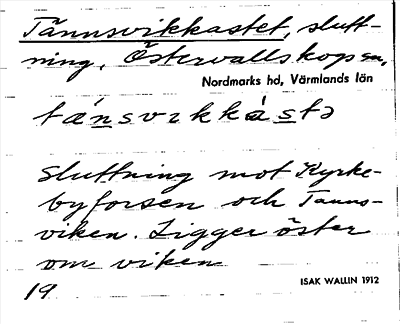 Tännsvikkastet, slutt-
ning, Östervallskogs sn,
Nordmarks hd, Värmlands län
tánsvɪkkàstə
Sluttning mot Kyrke-
byforsen och Tanns-
viken. Ligger öster
om viken
19
ISAK WALLIN 1912